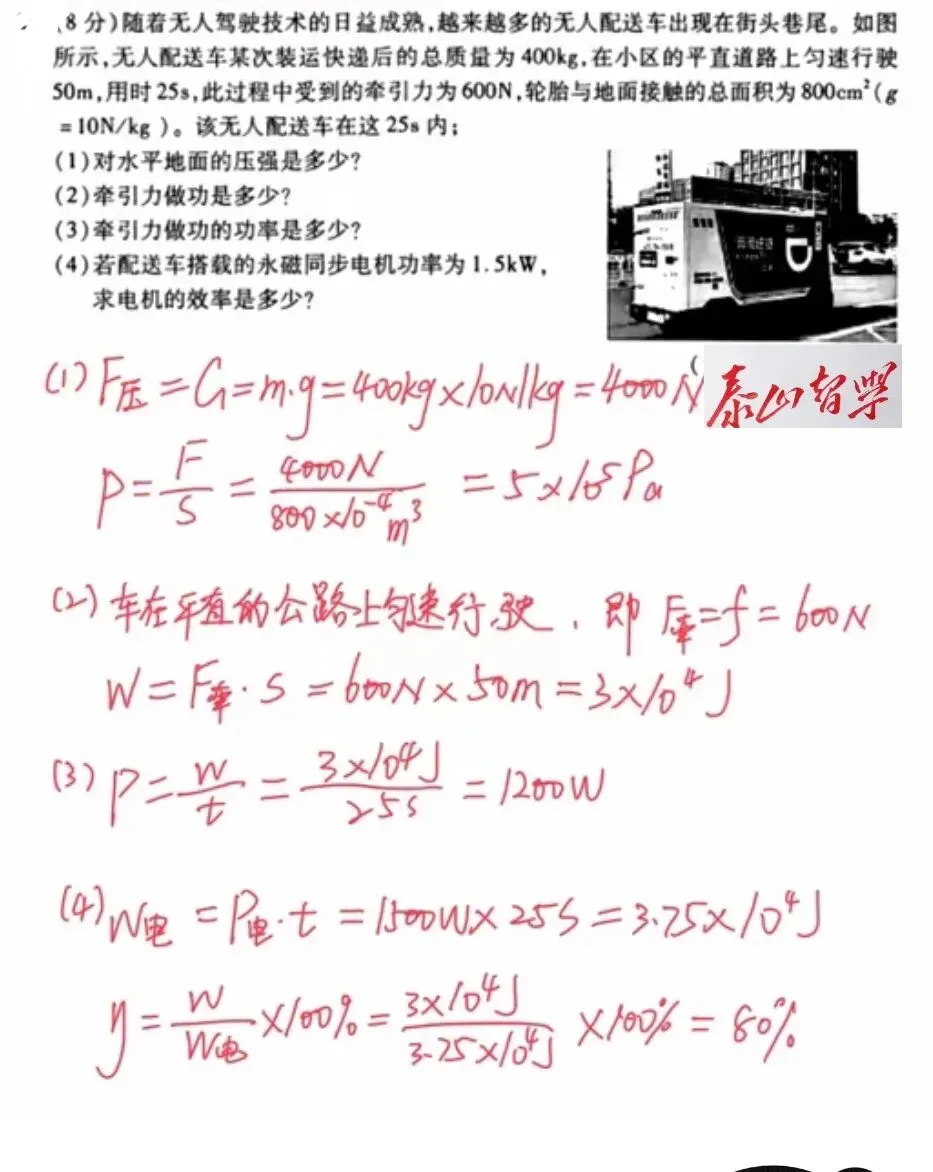 (8分)随着无人驾驶技术的日益成熟,越来越多的无人配送车出现在街头巷尾。如图
所示,无人配送车某次装运快递后的总质量为400kg,在小区的平直道路上匀速行驶
50m,用时25s,此过程中受到的牵引力为600N,轮胎与地面接触的总面积为800cm²(g
=10N/kg)。该无人配送车在这25s内:
(1)对水平地面的压强是多少?
(2)牵引力做功是多少?
(3)牵引力做功的功率是多少?
(4)若配送车搭载的永磁同步电机功率为1.5kW,
求电机的效率是多少?
(1) F压=G=m·g=400kg×10N/kg=4000N
泰山智学
P=F/S=4000N/800×10⁻⁴m³=5×10⁵Pa
(2) 车在平直的公路上匀速行驶,即F牵=f=600N
W=F牵·S=600N×50m=3×10⁴J
(3) P=W/t=3×10⁴J/25s=1200W
(4) W电=P电·t=1500W×25S=3.75×10⁴J
η=W/W电×100%=3×10⁴J/3.75×10⁴J×100%=80%